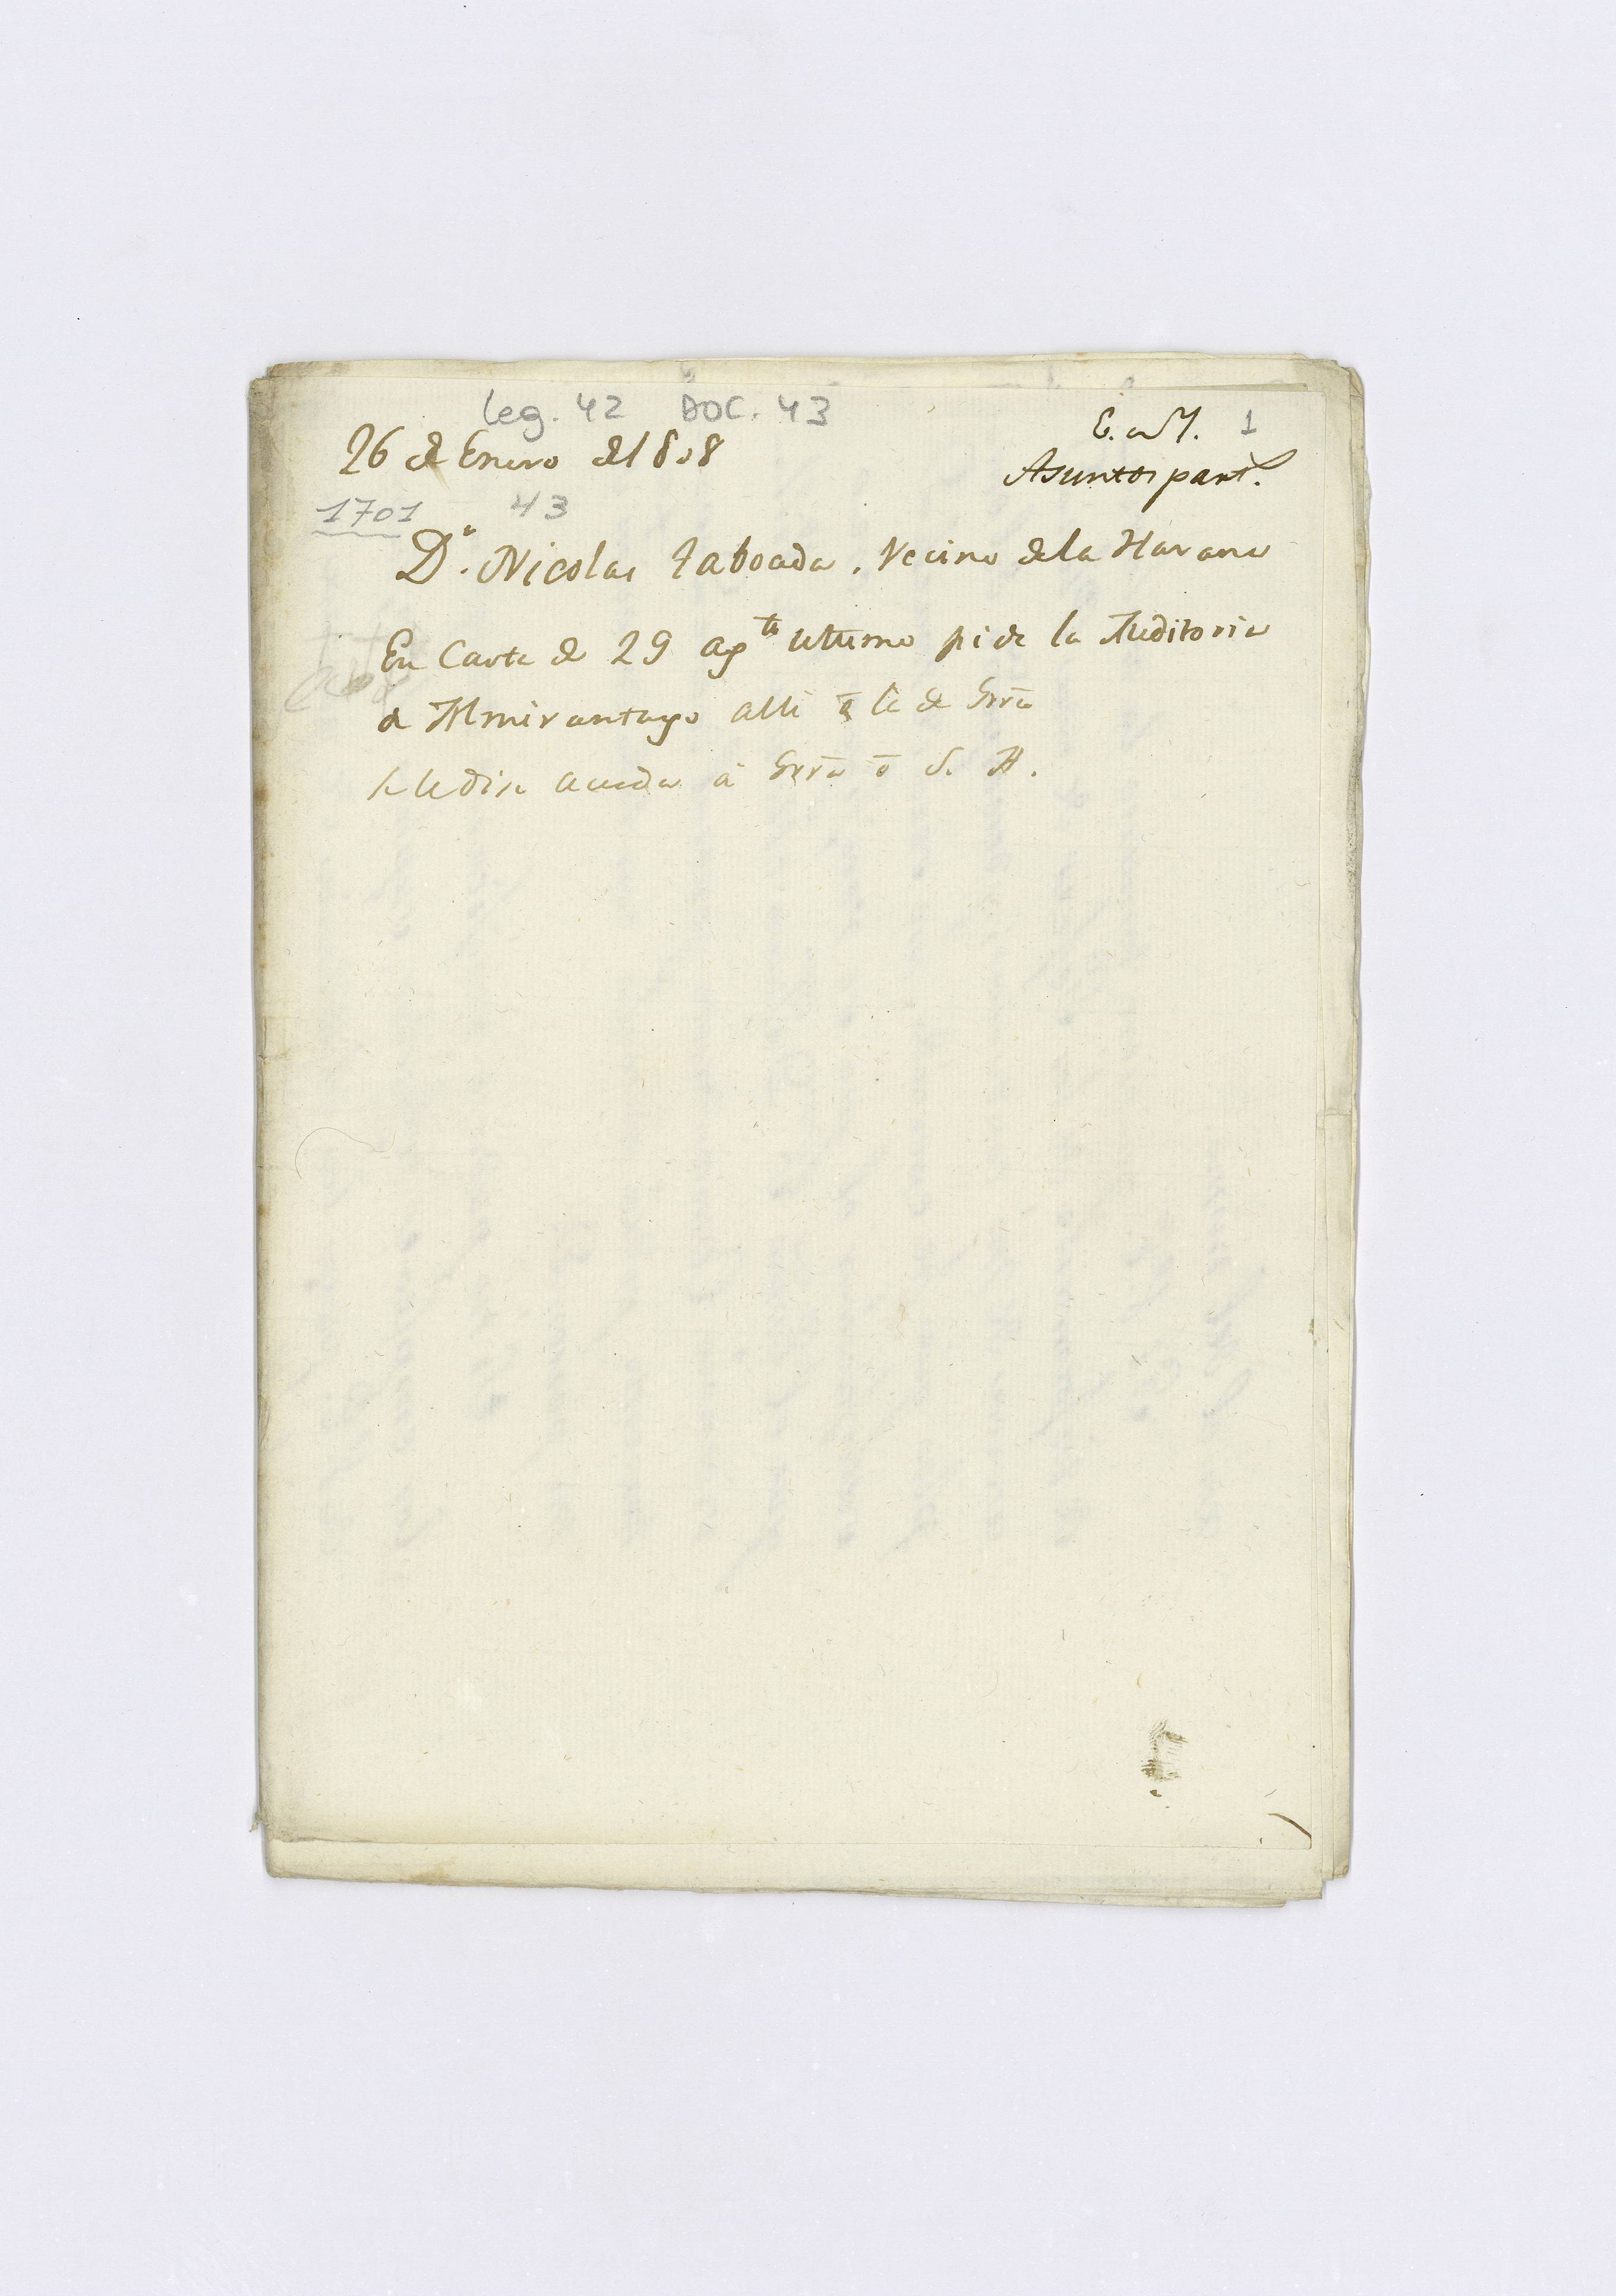 leg. 42 DOC. 43
26 de Enero de 1808
E. M. 1
Asuntos part.^s
1701 43
D.^n Nicolas Taboada. Vecino dela Havana
En Carta de 29 ag^to ultimo pide la Auditoria
de Almirantazgo alli ō la de Grra
se le dice acuda á Grra ō S. A.